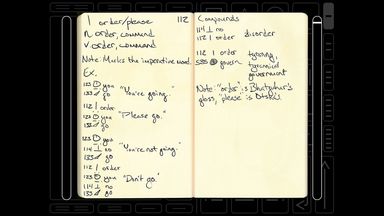 | order/please 112
n order, command
v order, command
Note: Marks the imperative mood.
Ex.
123 you "You're going."
133 go
112 | order
123 you "Please go."
133 go
123 you
114 ⊥ no "You're not going."
133 go
112 | order
123 you "Don't go."
114 ⊥ no
133 go
Compounds
114 ⊥ no
112 | order disorder
112 | order tyranny,
585 govern tyrannical
government
Note: "order" is
gloss, "please" is